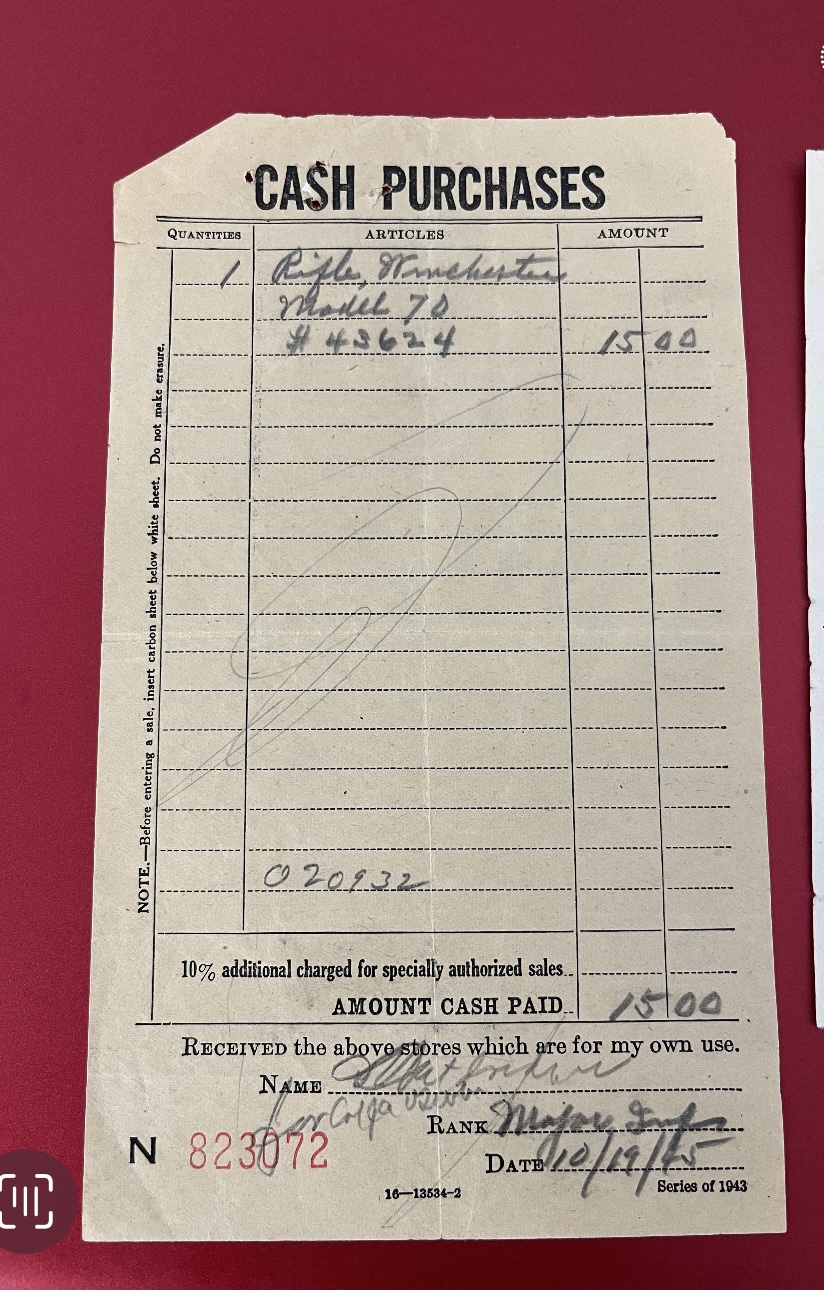 CASH PURCHASES
QUANTITIES ARTICLES AMOUNT
1 Rifle, Winchester
Model 70
# 43624 15 00
NOTE.—Before entering a sale, insert carbon sheet below white sheet. Do not make erasure.
020932
10% additional charged for specially authorized sales
AMOUNT CASH PAID 15 00
RECEIVED the above stores which are for my own use.
NAME
for
RANK Major
N 823072 DATE 10/19/45
16—13534-2 Series of 1943